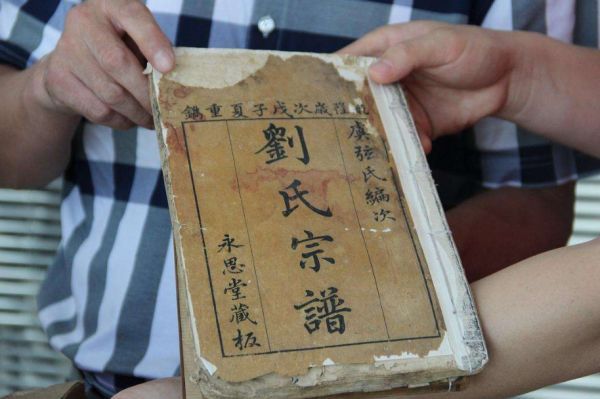 隆歲次戊子夏重鐫
虞弦氏編次
劉氏宗譜
永思堂藏板